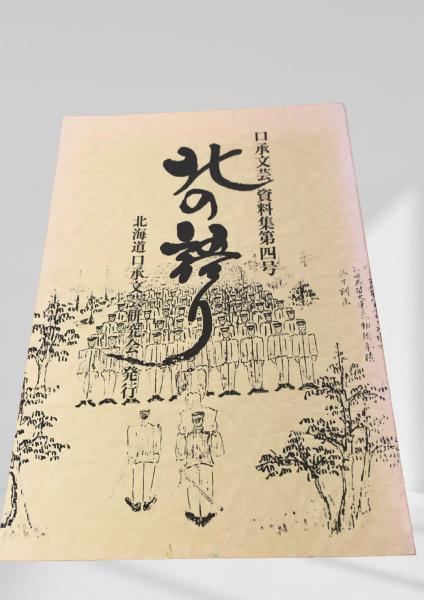 口承文芸資料集第四号
北の語り
北海道口承文芸研究会発行